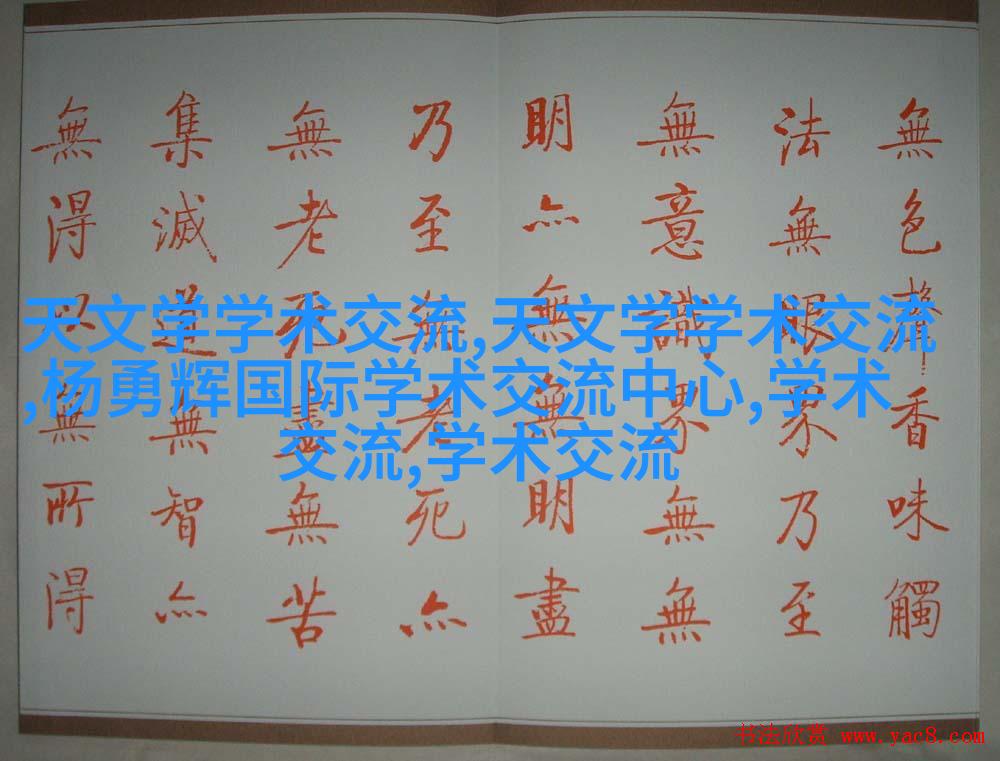 無色聲香味觸
法無眼界乃至
無意識界無無
明亦無無明盡
乃至無老死亦
無老死盡無苦
集滅道無智亦
無得以無所得
天文学学术交流,天文学学术交流
,杨勇辉国际学术交流中心,学术
交流,学术交流
书法欣赏 www.yac8.com